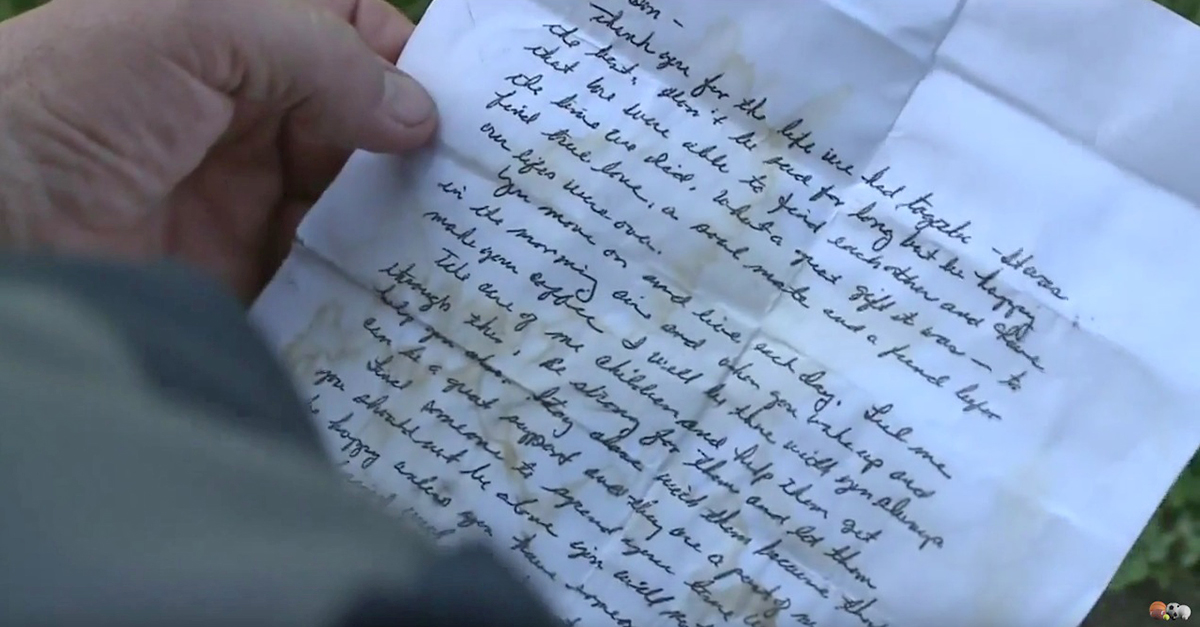 Thank you for the life we had together - it was
the best, don't be sad for long but be happy
that we were able to find each other and share
the time we did. What a great gift it was - to
find true love, a soul mate and a friend befor
our lifes were over.
You move on and live each day. Feel me
in the morning air and when you wake up and
made your coffee I will be there with you always
Take care of me children and help them get
through this. Be strong for them and let them
help you also. Stay close with them because they
can be a great support and they are a part of
Find someone to spend your time
you should not be alone you will
happy unless you have